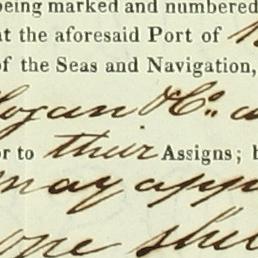 being marked and numbered
at the aforesaid Port of
of the Seas and Navigation,
Hogan & Co. a
or to their Assigns; b
may app
one shil